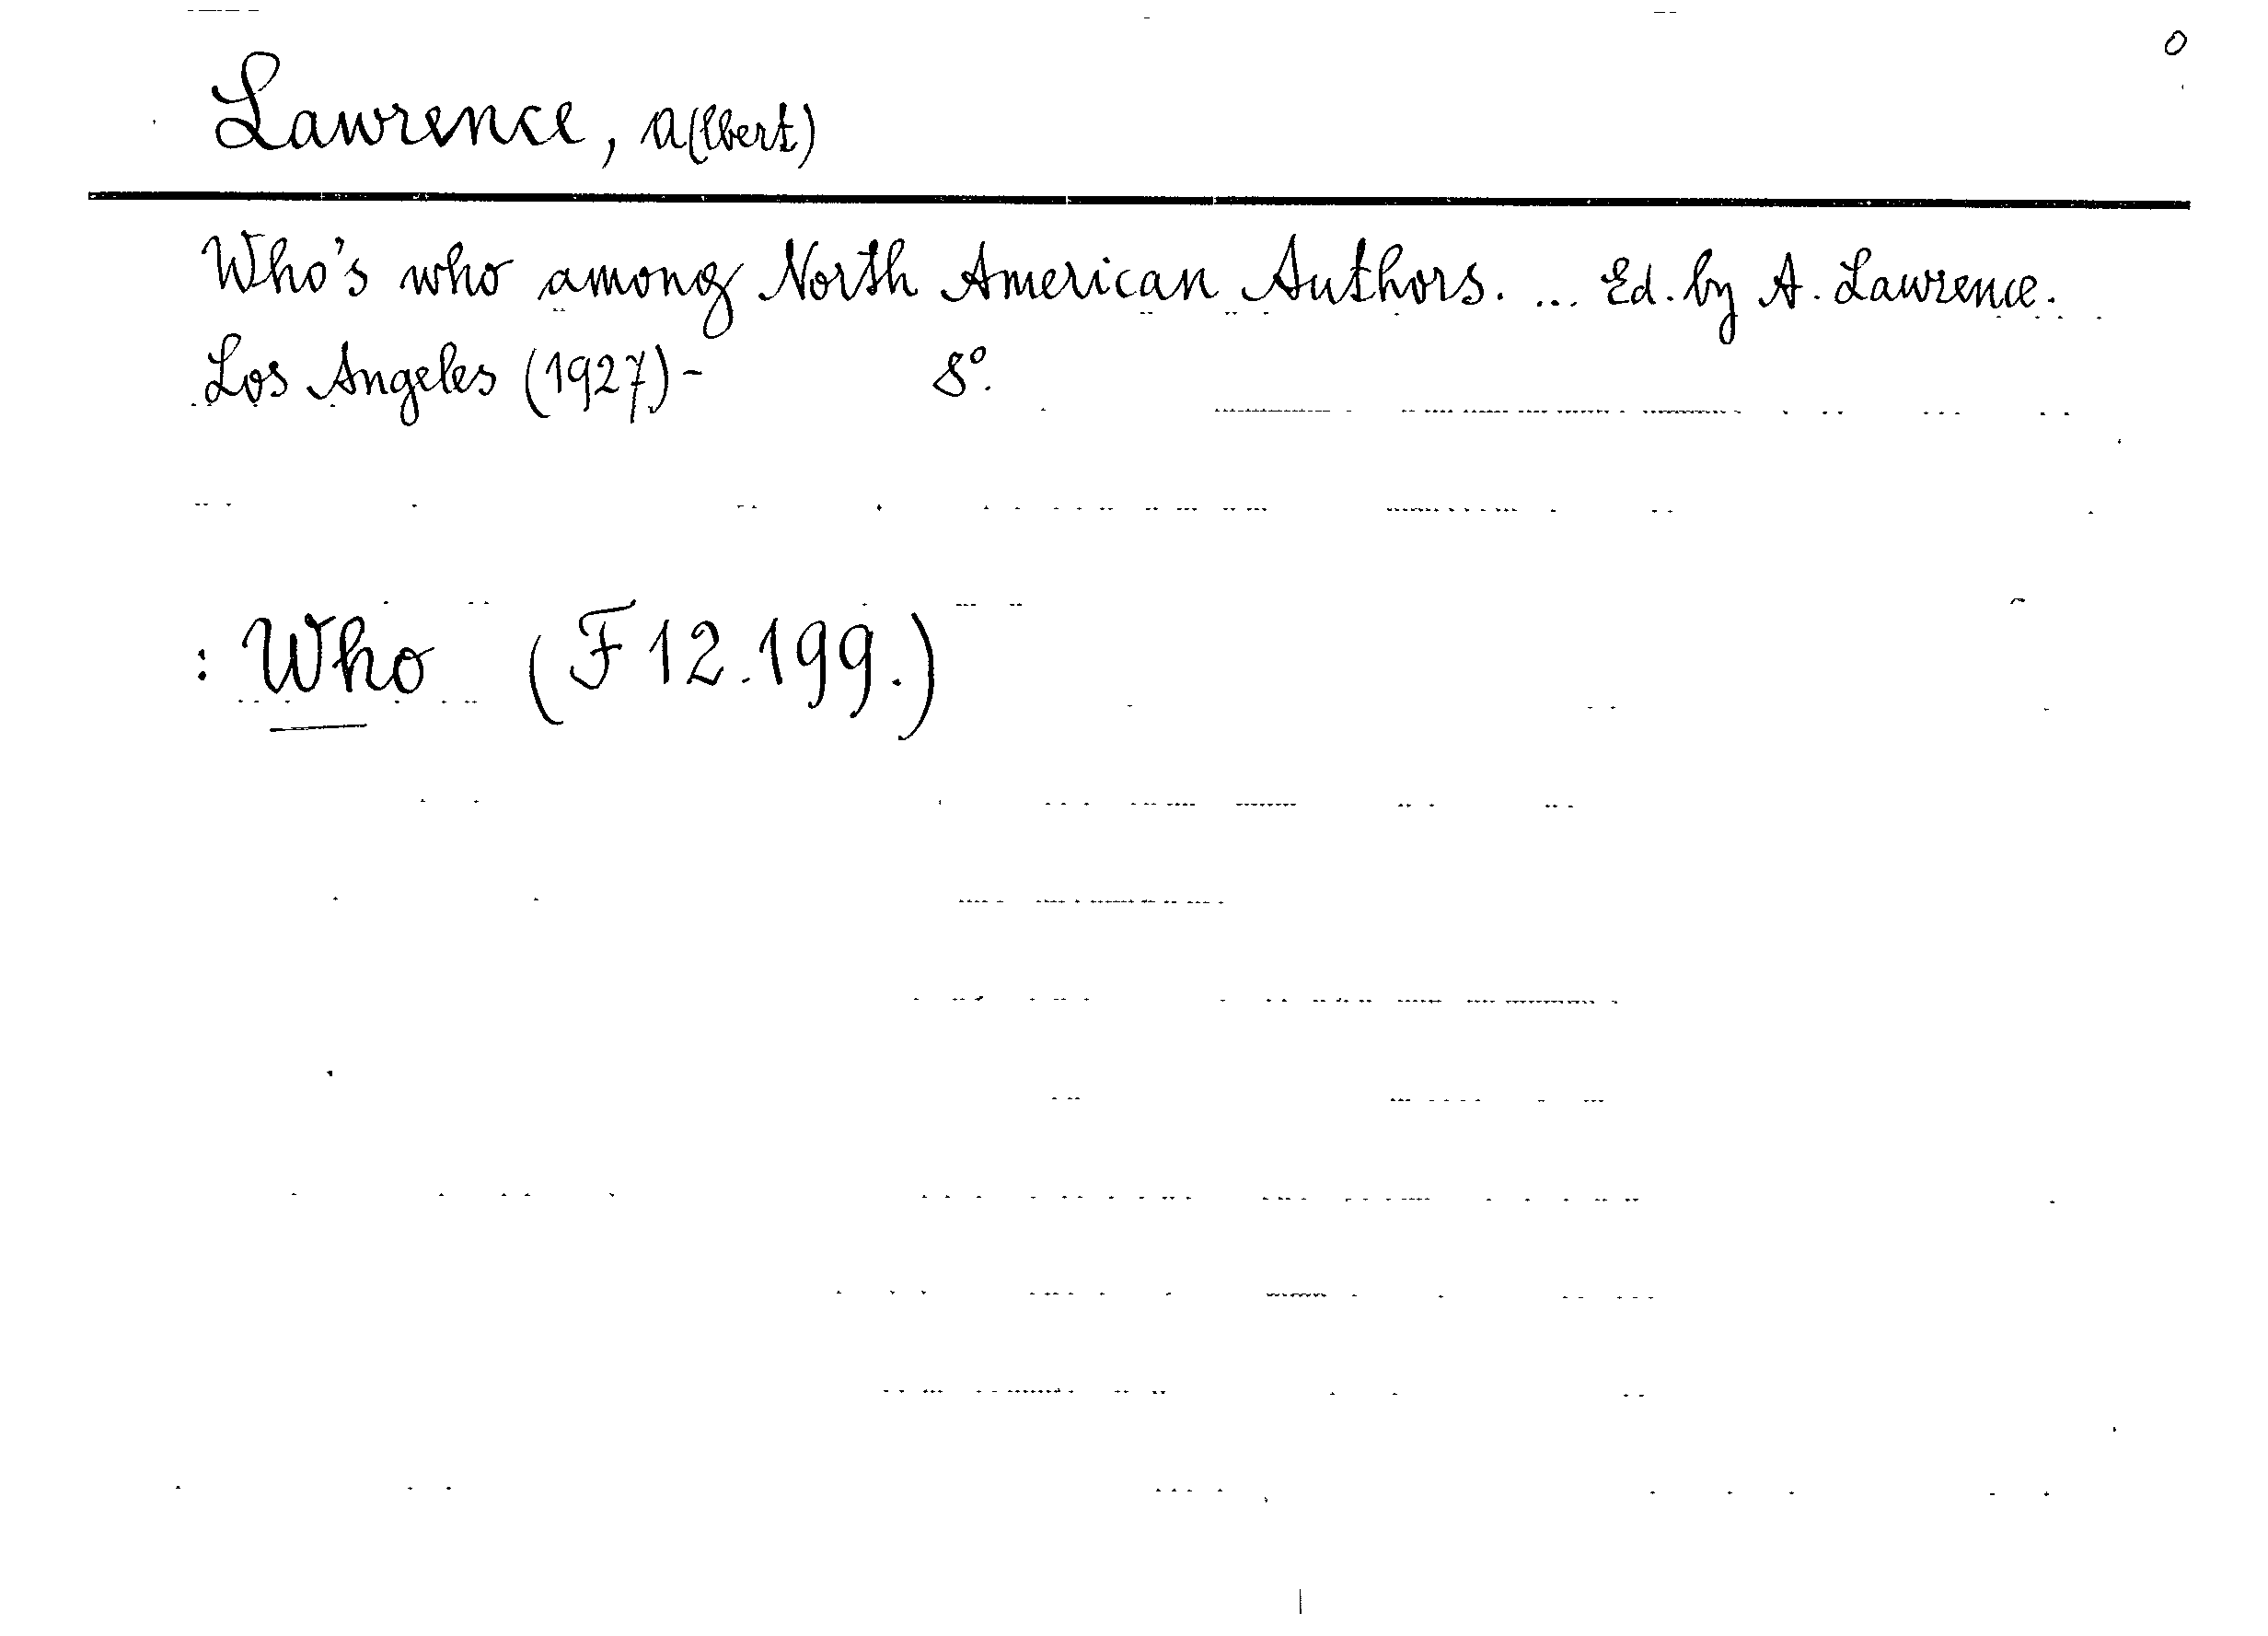 Lawrence, A(lbert)
Who's who among North American Authors. ... Ed. by A. Lawrence.
Los Angeles (1927)- 8°.
: Who (F 12.199.)